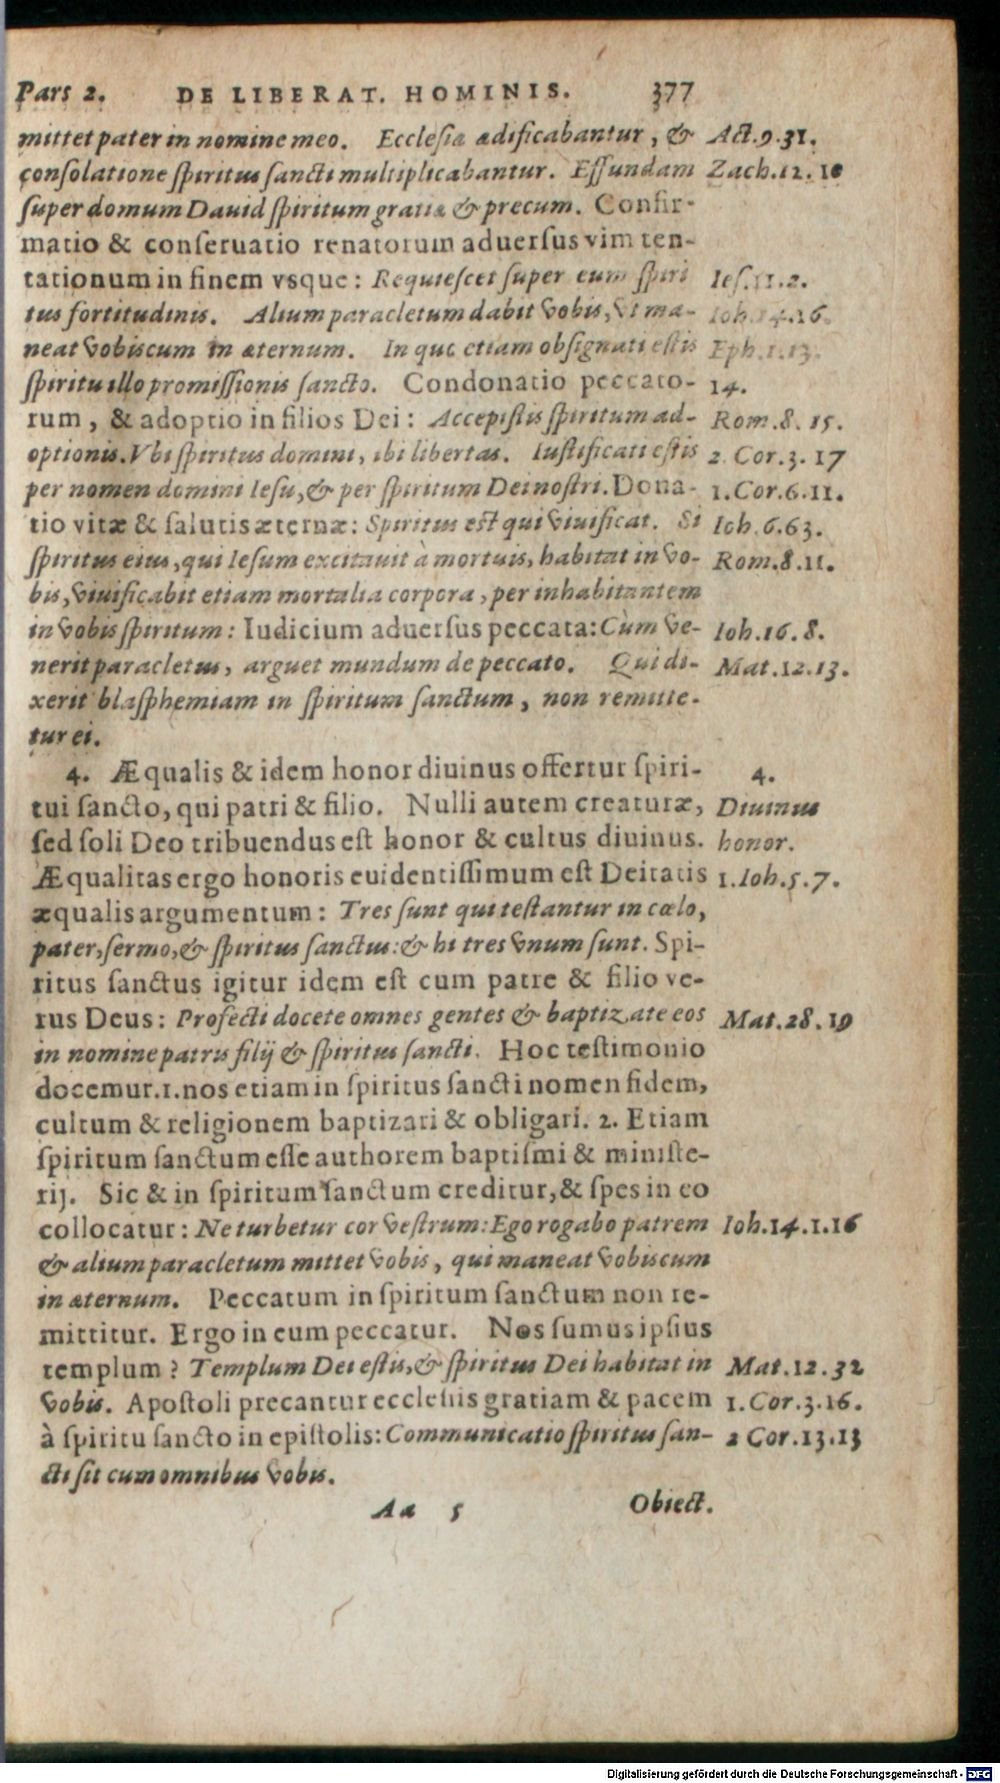 Pars 2. DE LIBERAT. HOMINIS. 377
mittet pater in nomine meo. Ecclesia ædificabantur, & Act.9.31.
consolatione spiritus sancti multiplicabantur. Effundam Zach.12.10
super domum Dauid spiritum gratiæ & precum. Confir-
matio & conseruatio renatorum aduersus vim ten-
tationum in finem vsque: Requiescet super eum spiri Ies.11.2.
tus fortitudinis. Alium paracletum dabit vobis, vt ma- Ioh.14.16.
neat vobiscum in æternum. In quo etiam obsignati estis Eph.1.13.
spiritu illo promissionis sancto. Condonatio peccato- 14.
rum, & adoptio in filios Dei: Accepistis spiritum ad- Rom.8.15.
optionis. Vbi spiritus domini, ibi libertas. Iustificati estis 2.Cor.3.17
per nomen domini Iesu, & per spiritum Dei nostri. Dona- 1.Cor.6.11.
tio vitæ & salutis æternæ: Spiritus est qui viuificat. Si Ioh.6.63.
spiritus eius, qui Iesum excitauit à mortuis, habitat in vo- Rom.8.11.
bis, viuificabit etiam mortalia corpora, per inhabitantem
in vobis spiritum: Iudicium aduersus peccata: Cùm ve- Ioh.16.8.
nerit paracletus, arguet mundum de peccato. Qui di- Mat.12.13.
xerit blasphemiam in spiritum sanctum, non remitte-
tur ei.
4. Æqualis & idem honor diuinus offertur spiri- 4.
tui sancto, qui patri & filio. Nulli autem creaturæ, Diuinus
sed soli Deo tribuendus est honor & cultus diuinus. honor.
Æqualitas ergo honoris euidentissimum est Deitatis 1.Ioh.5.7.
æqualis argumentum: Tres sunt qui testantur in cœlo,
pater, sermo, & spiritus sanctus: & hi tres vnum sunt. Spi-
ritus sanctus igitur idem est cum patre & filio ve-
rus Deus: Profecti docete omnes gentes & baptizate eos Mat.28.19
in nomine patris filij & spiritus sancti. Hoc testimonio
docemur. 1. nos etiam in spiritus sancti nomen fidem,
cultum & religionem baptizari & obligari. 2. Etiam
spiritum sanctum esse authorem baptismi & ministe-
rij. Sic & in spiritum sanctum creditur, & spes in eo
collocatur: Ne turbetur cor vestrum: Ego rogabo patrem Ioh.14.1.16
& alium paracletum mittet vobis, qui maneat vobiscum
in æternum. Peccatum in spiritum sanctum non re-
mittitur. Ergo in eum peccatur. Nos sumus ipsius
templum? Templum Dei estis, & spiritus Dei habitat in Mat.12.32
vobis. Apostoli precantur ecclesiis gratiam & pacem 1.Cor.3.16.
à spiritu sancto in epistolis: Communicatio spiritus san- 2 Cor.13.13
cti sit cum omnibus vobis.
Aa 5 Obiect.
Digitalisierung gefördert durch die Deutsche Forschungsgemeinschaft - DFG